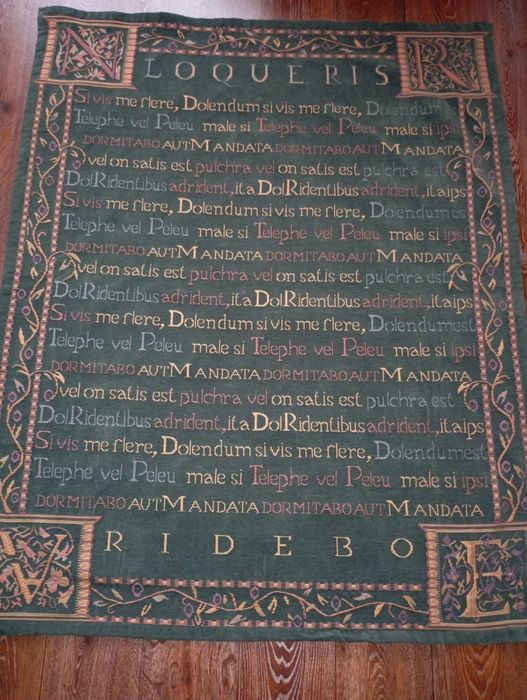 N R
LOQUERIS
Si vis me flere, Dolendum si vis me flere, Dolendumest
Telephe vel Peleu male si Telephe vel Peleu male si ipsi
DORMITABO AUT MANDATA DORMITABO AUT MANDATA
vel on satis est pulchra vel on satis est pulchra est
DolRidentibus adrident, ita DolRidentibus adrident, itaips
Si vis me flere, Dolendum si vis me flere, Dolendumest
Telephe vel Peleu male si Telephe vel Peleu male si ipsi
DORMITABO AUT MANDATA DORMITABO AUT MANDATA
vel on satis est pulchra vel on satis est pulchra est
DolRidentibus adrident, ita DolRidentibus adrident, itaips
Si vis me flere, Dolendum si vis me flere, Dolendumest
Telephe vel Peleu male si Telephe vel Peleu male si ipsi
DORMITABO AUT MANDATA DORMITABO AUT MANDATA
vel on satis est pulchra vel on satis est pulchra est
DolRidentibus adrident, ita DolRidentibus adrident, itaips
Si vis me flere, Dolendum si vis me flere, Dolendumest
Telephe vel Peleu male si Telephe vel Peleu male si ipsi
DORMITABO AUT MANDATA DORMITABO AUT MANDATA
A RIDEBO E